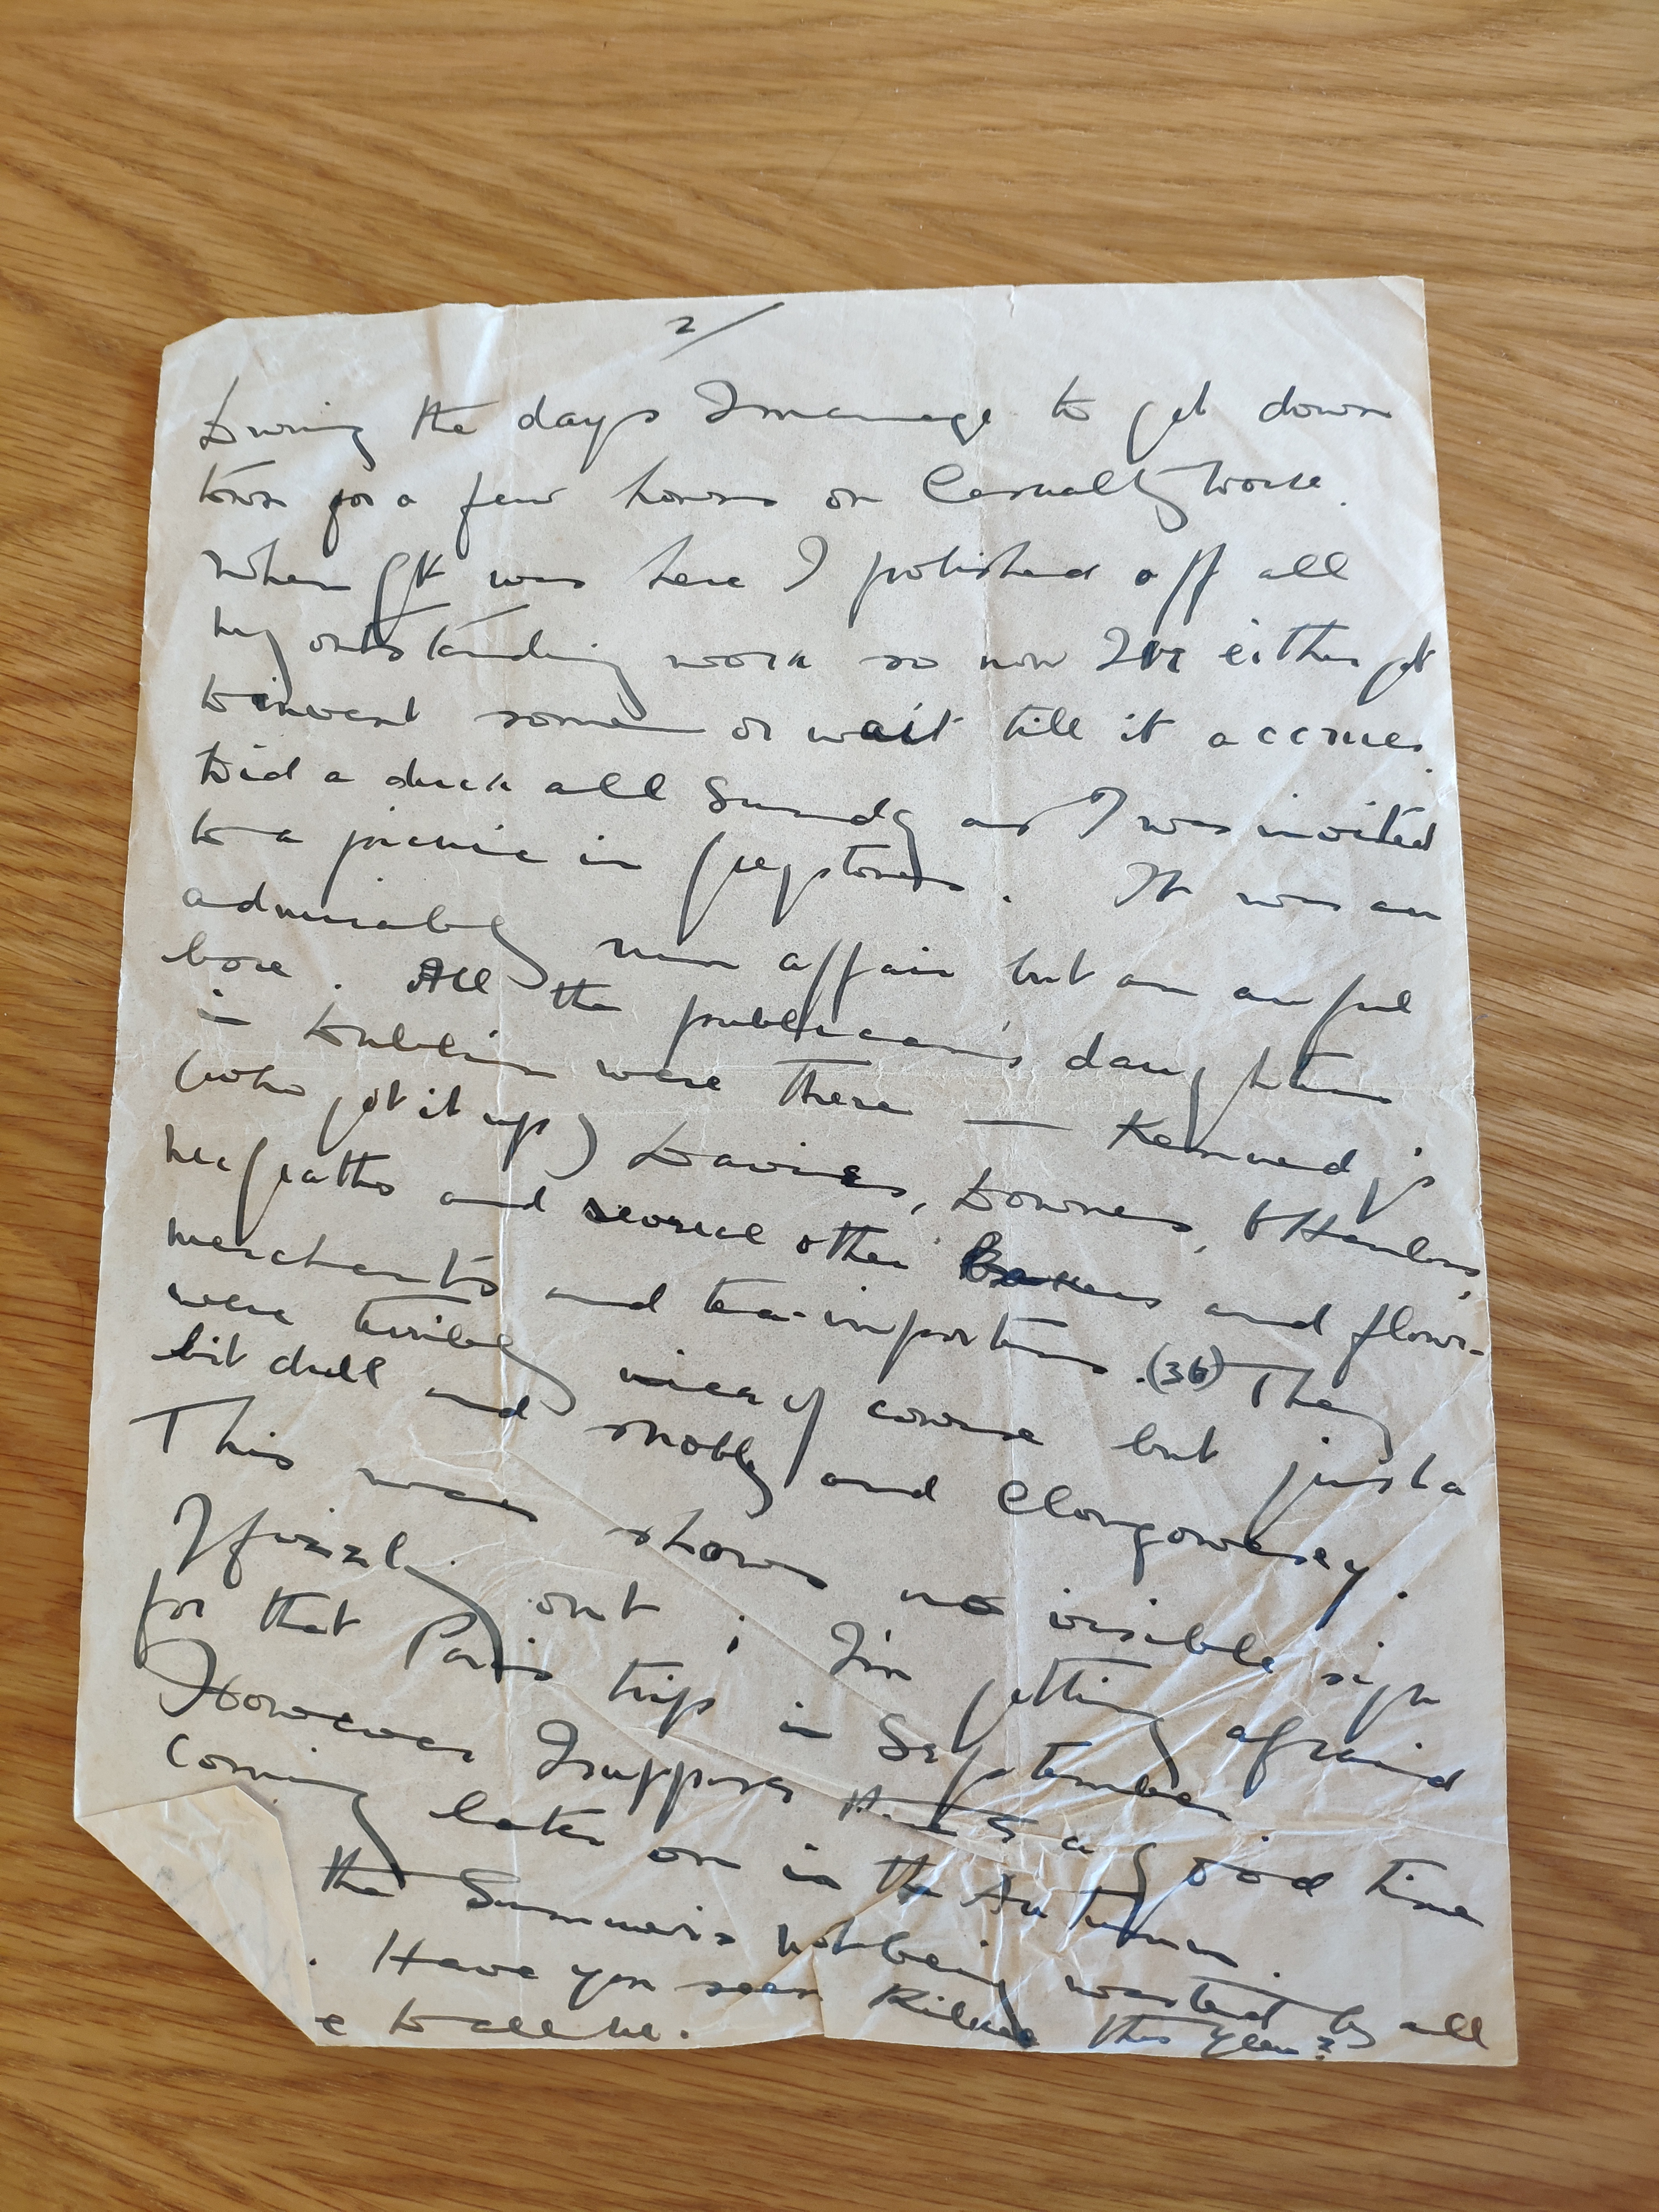 2/
During the days I manage to get down
town for a few hours on Casualty work.
When GK was here I polished off all
my outstanding work so now I've either got
to invent some or wait till it accrues.
Did a duck all Sunday as I was invited
to a picnic in Greystones. It was an
admirably run affair but an awful
bore. All the publican's daughters
in Dublin were there — Kennedy's
(who got it up) Davies, Downes, O'Hanlons,
McGraths and several other Bakers and flour-
merchants and tea-importers. (36) They
were terribly nice of course but just a
bit dull and snobby and Clongowesey.
This war shows no visible sign
of fizzling out; I'm getting afraid
for that Paris trip in September.
However I suppose there's a good time
coming later on in the Autumn.
the Summer's not being wasted by all
. Have you seen Kilkee this year?
e to all